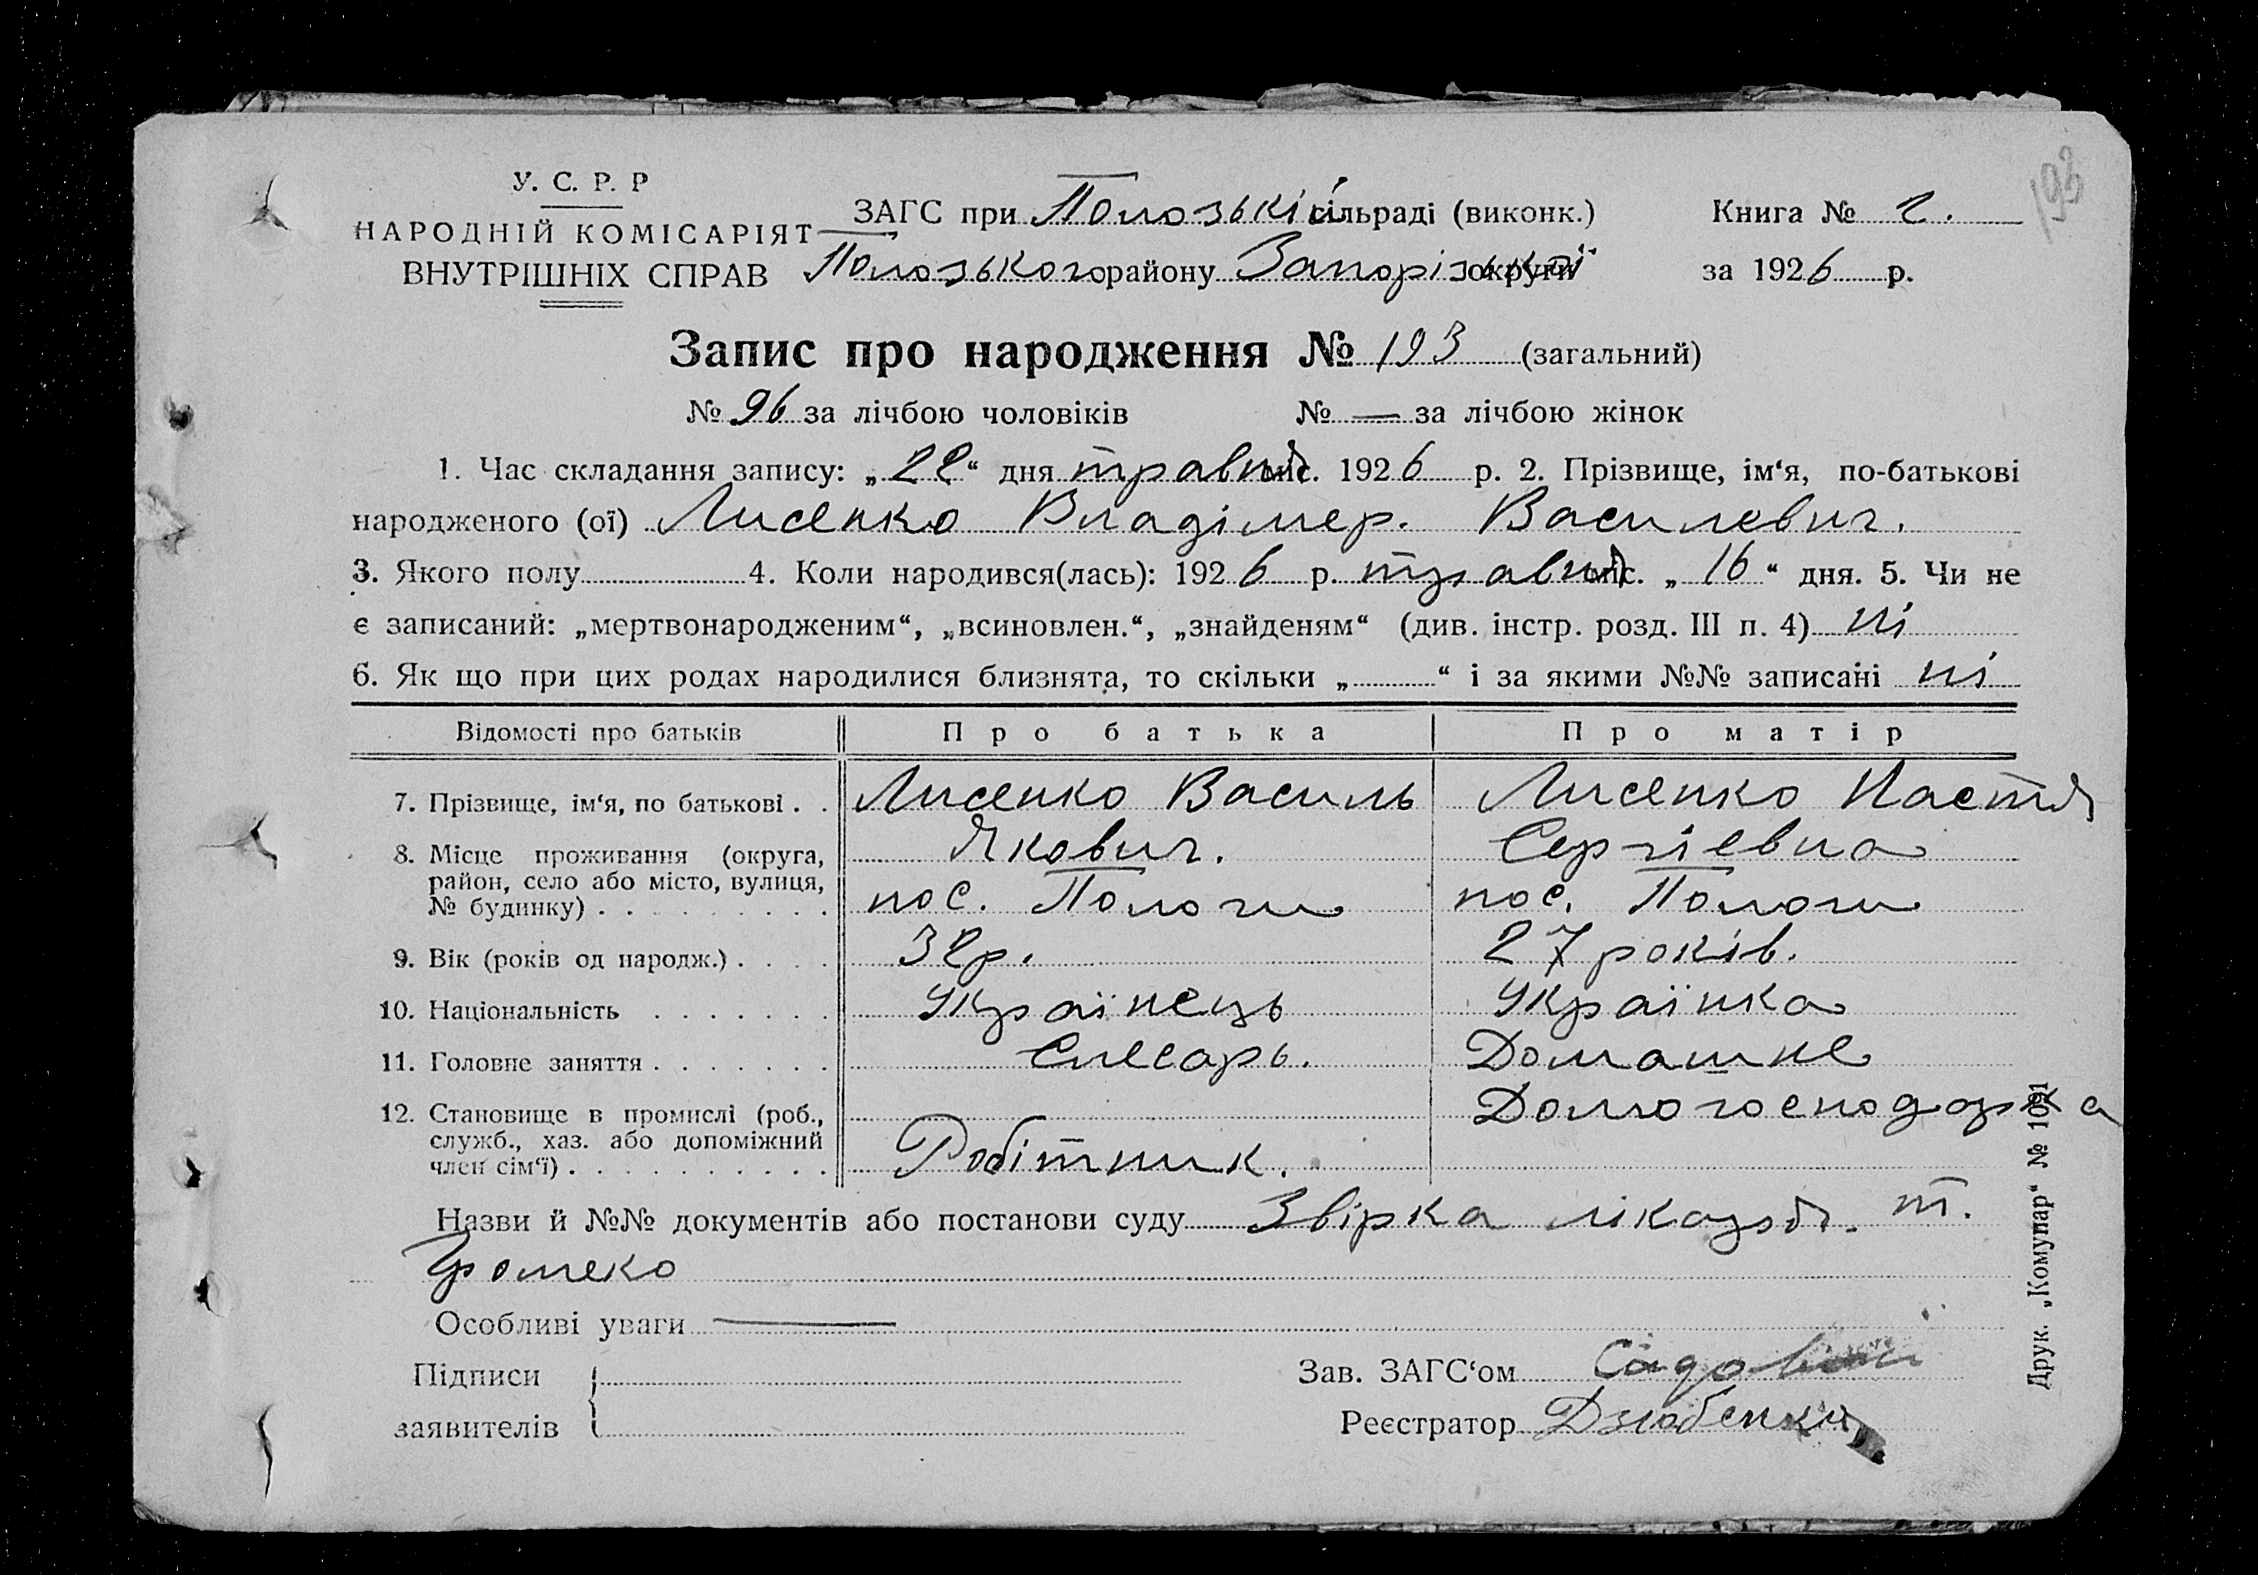 193
У. С. Р. Р
НАРОДНІЙ КОМІСАРІЯТ
ВНУТРІШНІХ СПРАВ
ЗАГС при Пологзькій сільраді (виконк.)
Пологзького району Запорізької округи
Книга № 2.
за 1926 р.
Запис про народження № 193 (загальний)
№ 96 за лічбою чоловіків № — за лічбою жінок
1. Час складання запису: „22“ дня травня міс. 1926 р. 2. Прізвище, ім‘я, по-батькові
народженого (ої) Лисенко Владімер. Василевич.
3. Якого полу 4. Коли народився(лась): 1926 р. травня міс. „16“ дня. 5. Чи не
є записаний: „мертвонародженим“, „всиновлен.“, „знайденям“ (див. інстр. розд. III п. 4) ні
6. Як що при цих родах народилися близнята, то скільки „ “ і за якими №№ записані ні
Відомості про батьків Про батька Про матір
7. Прізвище, ім‘я, по батькові . . Лисенко Василь Лисенко Настя
Якович. Сергіевна
8. Місце проживання (округа,
район, село або місто, вулиця,
№ будинку) . . . . . . . . . пос. Пологи пос. Пологи
9. Вік (років од народж.) . . . . 32р. 27 років.
10. Національність . . . . . . . Українець Українка
11. Головне заняття . . . . . . . Слесарь. Домашне
12. Становище в промислі (роб.,
служб., хаз. або допоміжний
член сім‘ї) . . . . . . . . . . Робітник. Домогосподарка
Назви й №№ документів або постанови суду Звірка лікаря. т.
Громеко
Особливі уваги —
Підписи
заявителів
Зав. ЗАГС‘ом Садовий
Реєстратор Дзюбенко
Друк. „Комунар“ № 1091